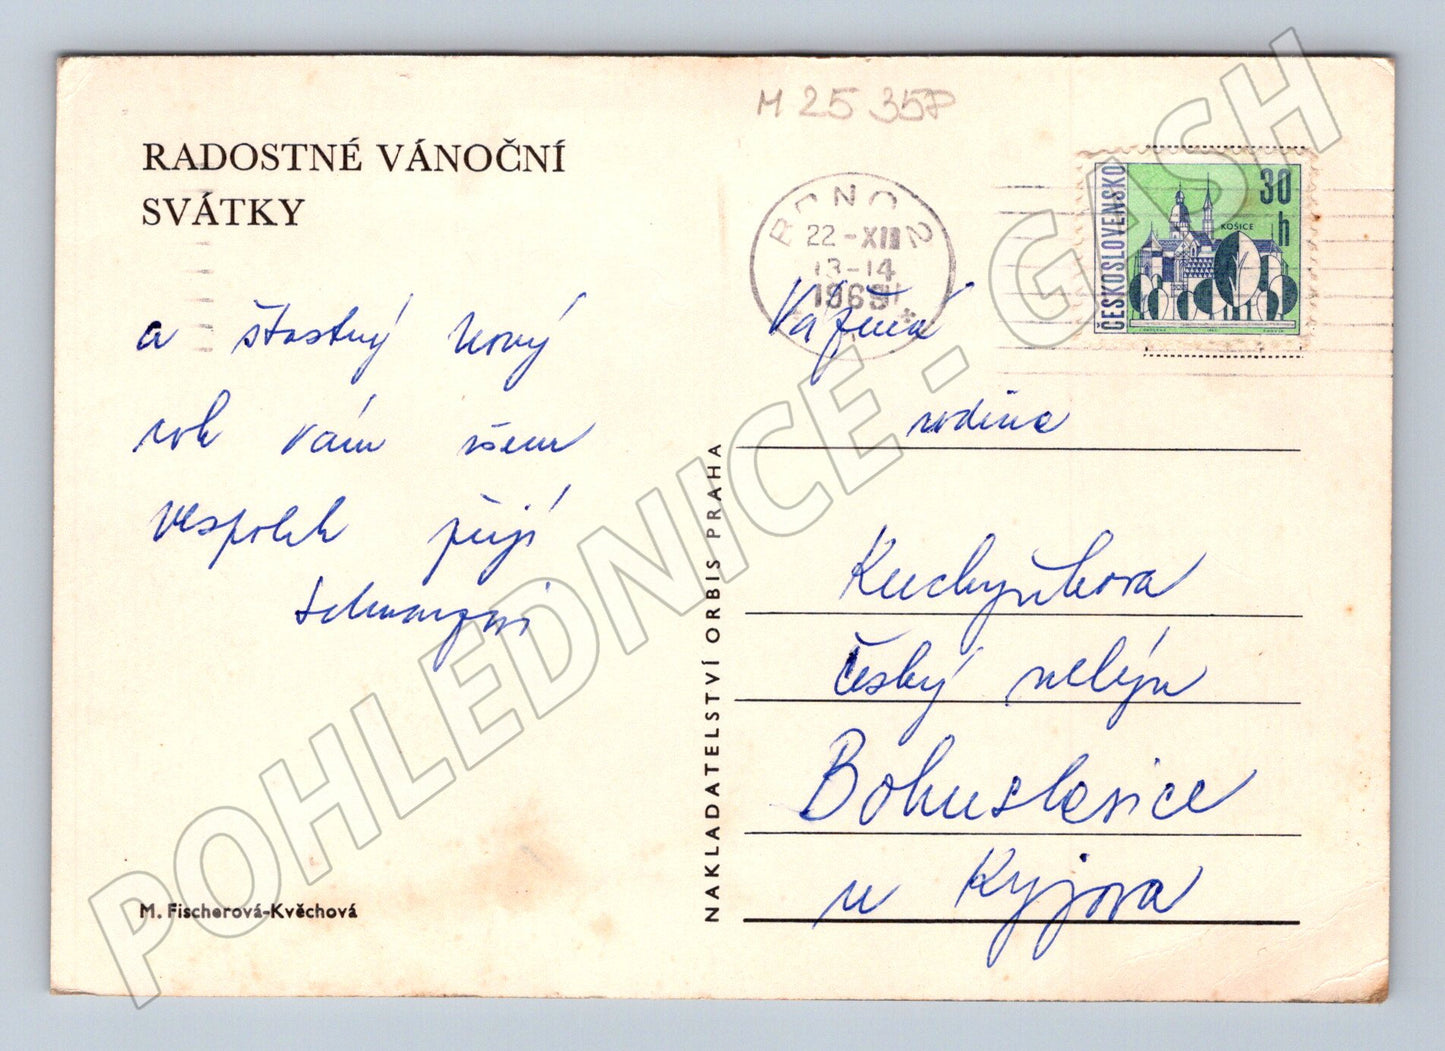 M 25 35P
RADOSTNÉ VÁNOČNÍ
SVÁTKY
a štastný nový
rok vám všem
vespolek přejí
M. Fischerová-Kvěchová
NAKLADATELSTVÍ ORBIS PRAHA
BRNO 2
22-XII
13-14
1969
ČESKOSLOVENSKO
30
h
KOŠICE
Vážená
rodina
Kuchyňkova
Český mlýn
Bohuslavice
u Kyjova
POHLEDNICE - GASH